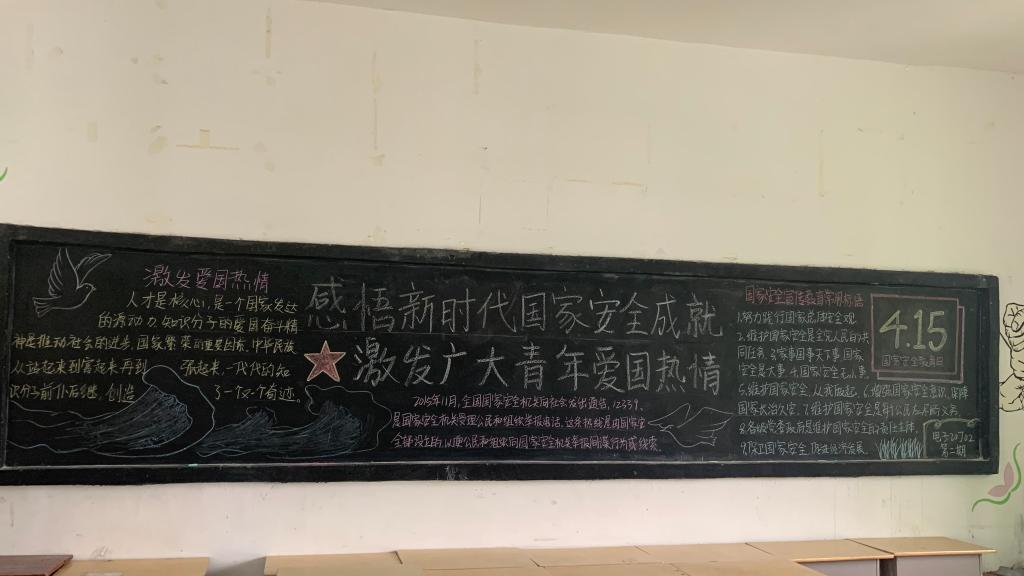 激发爱国热情
人才是核心,是一个国家发达
的源动力.知识分子的爱国奋斗精
神是推动社会的进步,国家繁荣的重要因素.中华民族
从站起来到富起来再到 强起来.一代代的知
识分子前仆后继,创造 了一个又一个奇迹。
感悟新时代国家安全成就
激发广大青年爱国热情
2015年11月,全国国家安全机关向社会发出通告,12339,
是国家安全机关受理公民和组织举报电话,这条热线是由国家安
全部设立的,以便公民和组织向国家安全机关举报间谍行为或线索.
国家安全宣传教育年用标语
1.努力践行国家总体安全观
2.维护国家安全是全元人民的共
同任务 3.家事国事天下事 国家
安全是大事 4.国家安全无小事
5.维护国家安全,从我做起. 6.增强国家安全意识,保障
国家长治久安. 7.维护国家安全是每个公民应尽的义务
8.各级党委政府是维护国家安全的责任主体.
9.保卫国家安全 促进经济发展.
4.15
国家安全教育日
电子20702
第二期